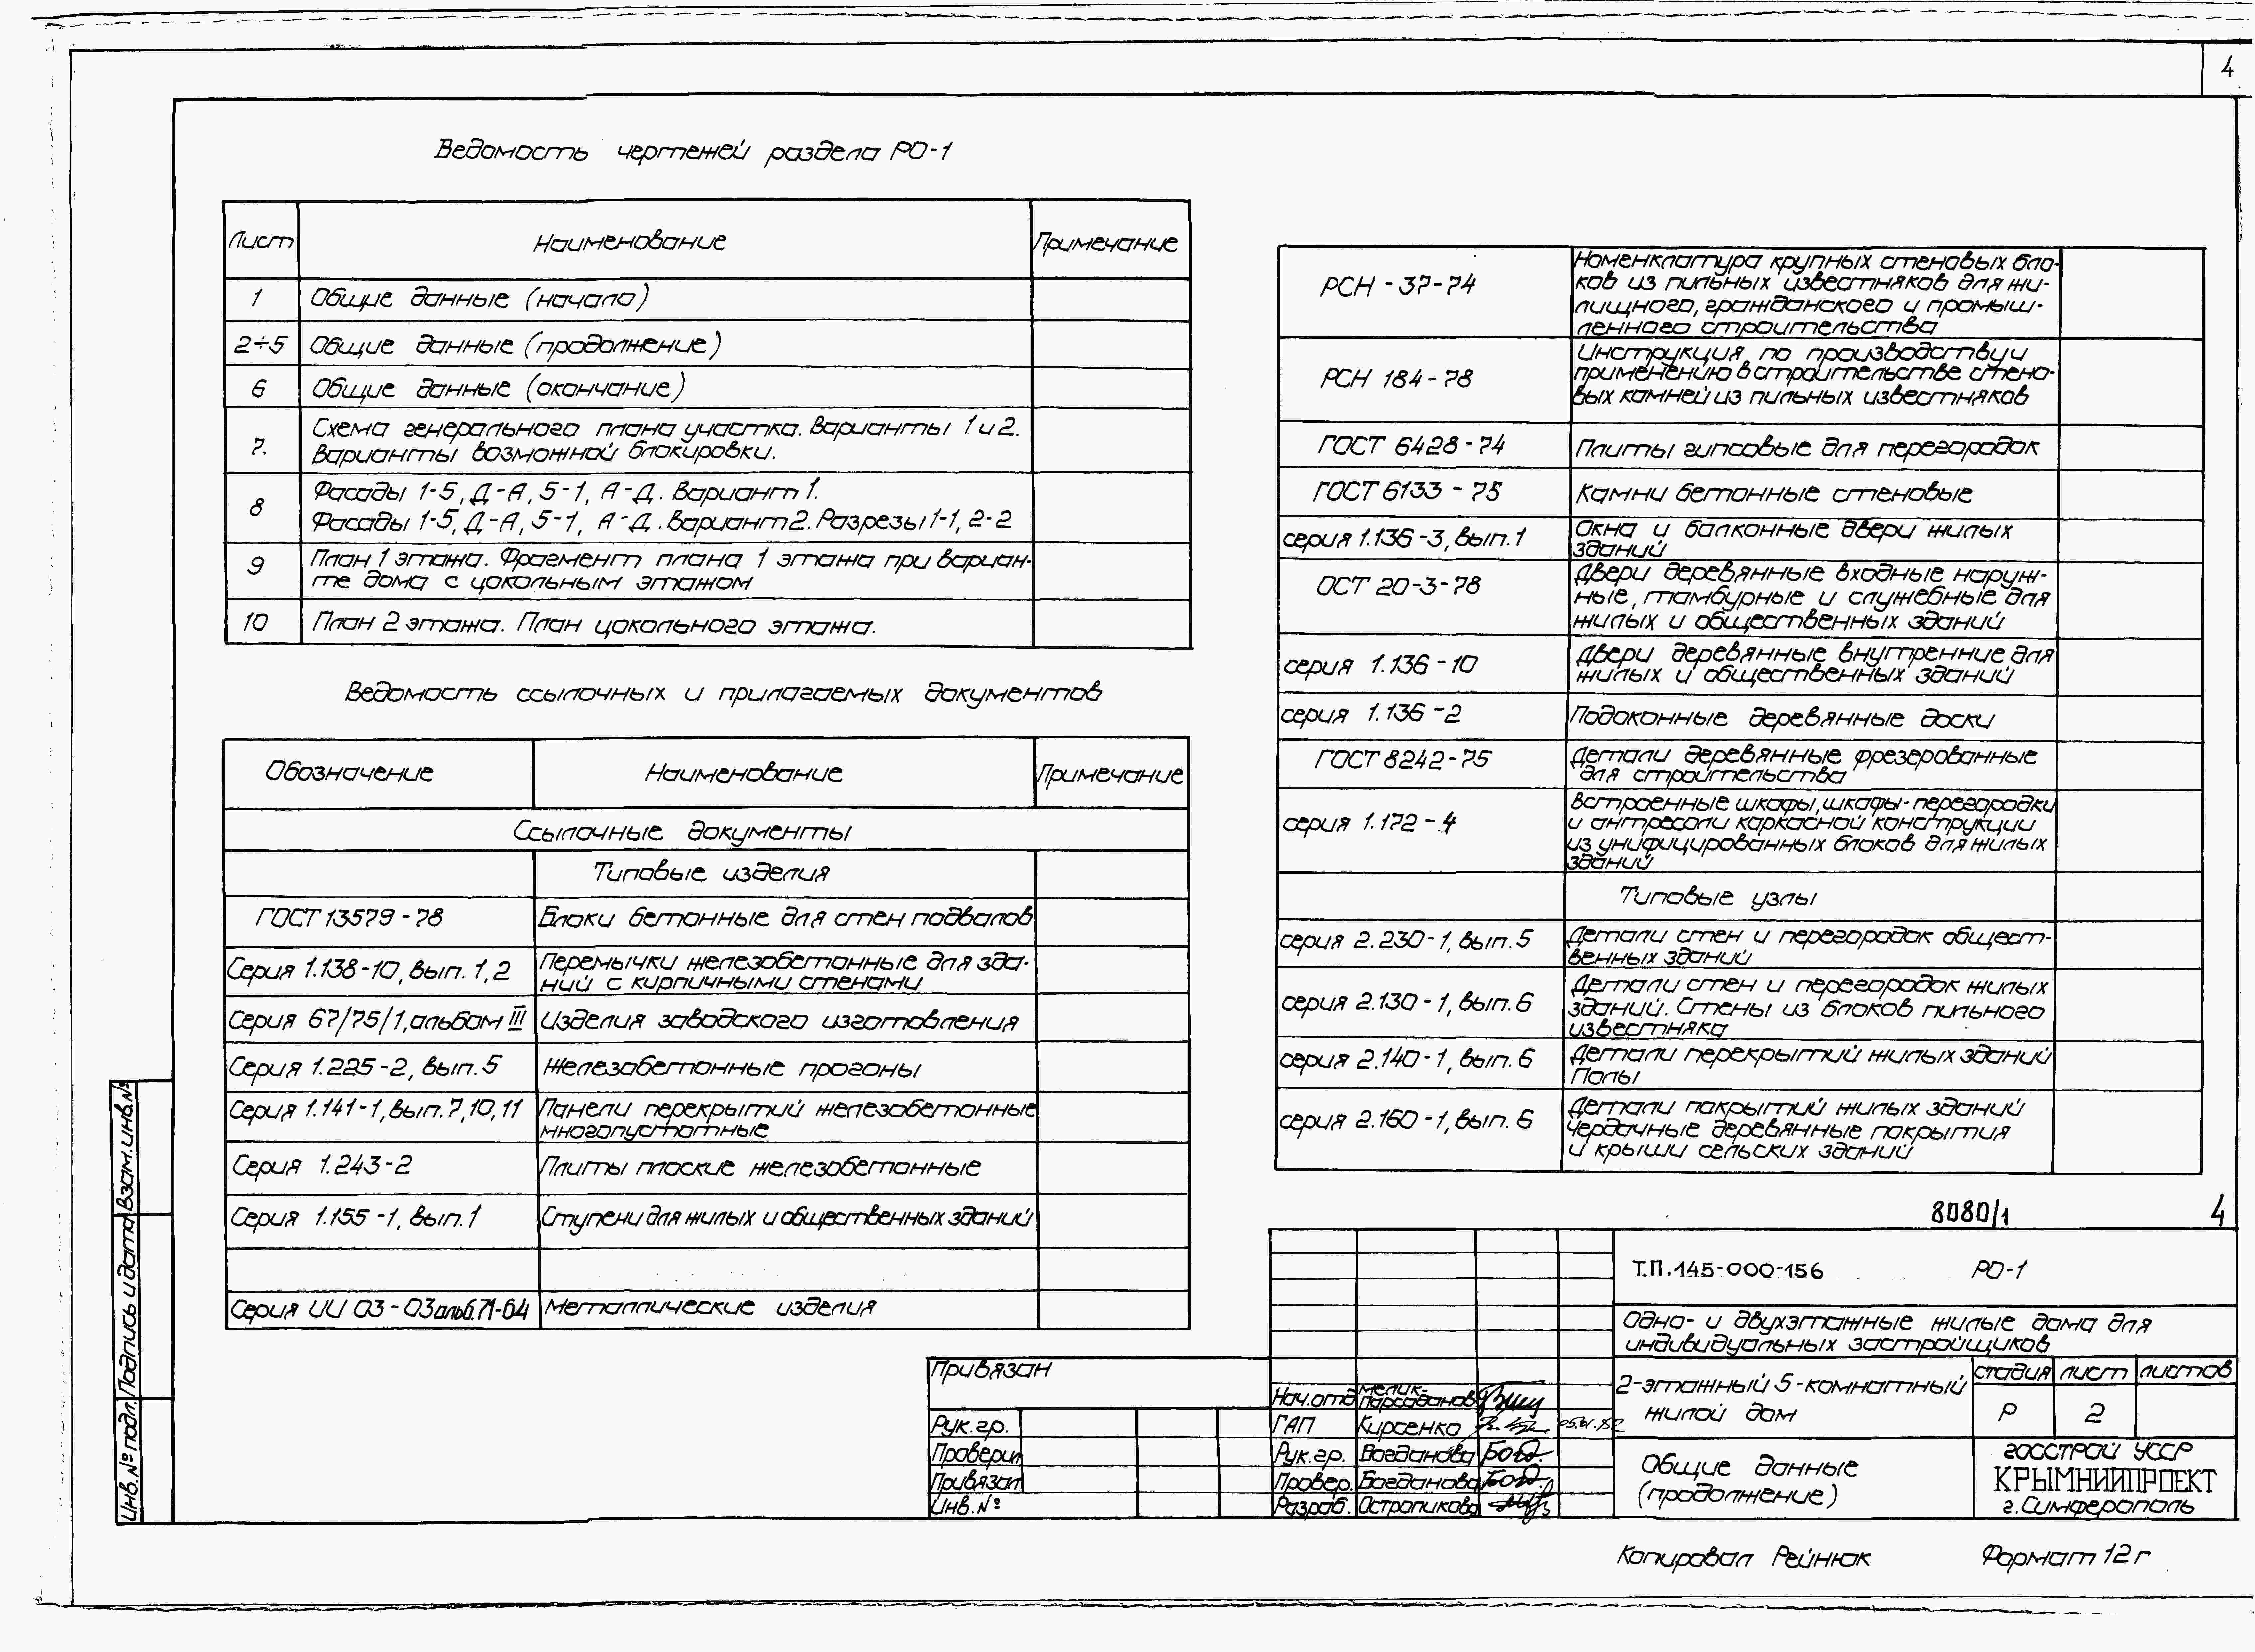 4
Ведомость чертежей раздела РО-1
Лист Наименование Примечание
1 Общие данные (начало)
2÷5 Общие данные (продолжение)
6 Общие данные (окончание)
7. Схема генерального плана участка. Варианты 1 и 2.
Варианты возможной блокировки.
8 Фасады 1-5, Д-А, 5-1, А-Д. Вариант 1.
Фасады 1-5, Д-А, 5-1, А-Д. Вариант 2. Разрезы 1-1, 2-2
9 План 1 этажа. Фрагмент плана 1 этажа при вариан-
те дома с цокольным этажом
10 План 2 этажа. План цокольного этажа.
Ведомость ссылочных и прилагаемых документов
Обозначение Наименование Примечание
Ссылочные документы
Типовые изделия
ГОСТ 13579-78 Блоки бетонные для стен подвалов
Серия 1.138-10, вып. 1,2 Перемычки железобетонные для зда-
ний с кирпичными стенами
Серия 67/75/1, альбом III Изделия заводского изготовления
Серия 1.225-2, вып. 5 Железобетонные прогоны
Серия 1.141-1, вып. 7,10,11 Панели перекрытий железобетонные
многопустотные
Серия 1.243-2 Плиты плоские железобетонные
Серия 1.155-1, вып.1 Ступени для жилых и общественных зданий
Серия ИИ 03-03 альб.71-64 Металлические изделия
РСН-37-74 Номенклатура крупных стеновых бло-
ков из пильных известняков для жи-
лищного, гражданского и промыш-
ленного строительства
РСН 184-78 Инструкция по производству и
применению в строительстве стено-
вых камней из пильных известняков
ГОСТ 6428-74 Плиты гипсовые для перегородок
ГОСТ 6133-75 Камни бетонные стеновые
серия 1.136-3, вып.1 Окна и балконные двери жилых
зданий
ОСТ 20-3-78 Двери деревянные входные наруж-
ные, тамбурные и служебные для
жилых и общественных зданий
серия 1.136-10 Двери деревянные внутренние для
жилых и общественных зданий
серия 1.136-2 Подоконные деревянные доски
ГОСТ 8242-75 Детали деревянные фрезерованные
для строительства
серия 1.172-4 Встроенные шкафы, шкафы-перегородки
и антресоли каркасной конструкции
из унифицированных блоков для жилых
зданий
Типовые узлы
серия 2.230-1, вып. 5 Детали стен и перегородок общест-
венных зданий
серия 2.130-1, вып. 6 Детали стен и перегородок жилых
зданий. Стены из блоков пильного
известняка
серия 2.140-1, вып. 6 Детали перекрытий жилых зданий
Полы
серия 2.160-1, вып. 6 Детали покрытий жилых зданий
Чердачные деревянные покрытия
и крыши сельских зданий
8080/1 4
Т.П. 145-000-156 РО-1
Одно- и двухэтажные жилые дома для
индивидуальных застройщиков
2-этажный 5-комнатный
жилой дом
стадия лист листов
Р 2
Общие данные
(продолжение)
ГОССТРОЙ УССР
КРЫМНИИПРОЕКТ
г. Симферополь
Нач.отд Мелик-
Парсаданов
ГАП Кирсенко
Рук.гр. Богданова
Провер. Богданова
Разраб. Остропикова
Привязан
Рук.гр.
Проверил
Привязал
Инв.№
Инв.№ подл. Подпись и дата Взам.инв.№
Копировал Рейнюк Формат 12г